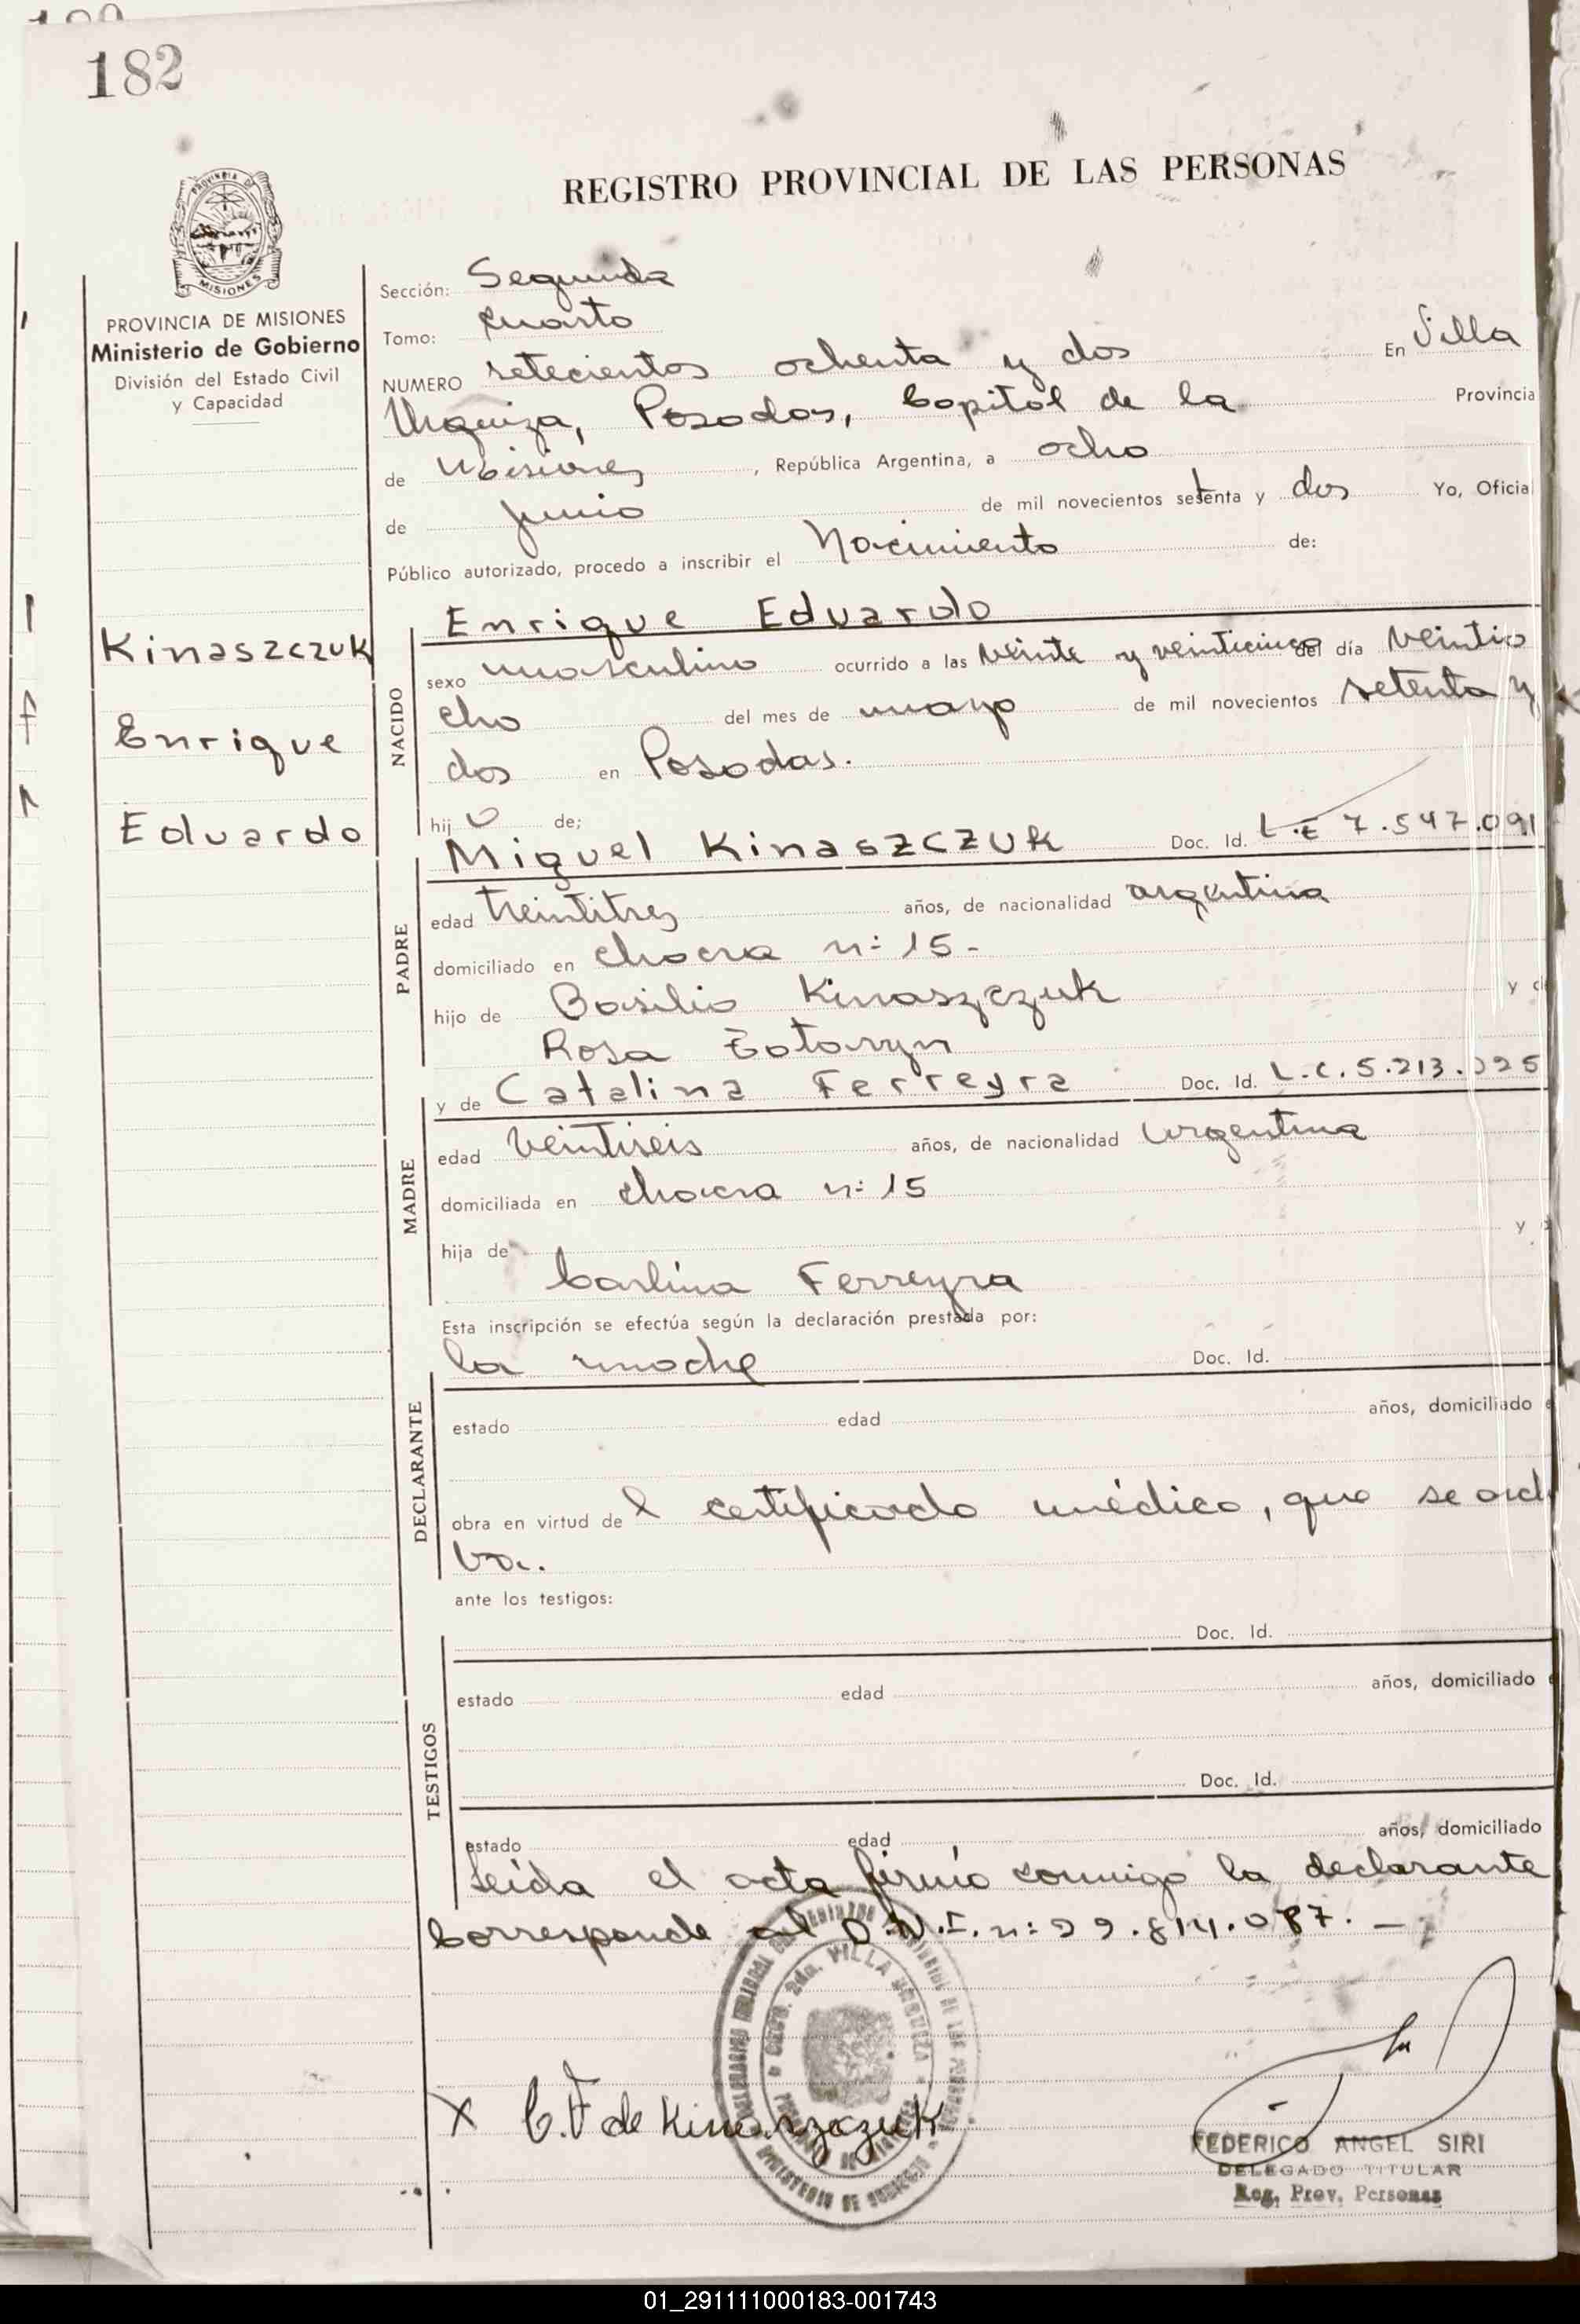 182
REGISTRO PROVINCIAL DE LAS PERSONAS
PROVINCIA DE MISIONES
Ministerio de Gobierno
División del Estado Civil
y Capacidad
Kinaszczuk
Enrique
Eduardo
Sección: Segunda
Tomo: Cuarto
NUMERO setecientos ochenta y dos En Villa
Urquiza, Posadas, Capital de la Provincia
de Misiones, República Argentina, a ocho
de junio de mil novecientos setenta y dos Yo, Oficial
Público autorizado, procedo a inscribir el Nacimiento de:
NACIDO
Enrique Eduardo
sexo masculino ocurrido a las veinte y veinticinco del día veintio
cho del mes de mayo de mil novecientos setenta y
dos en Posadas.
hijo de;
PADRE
Miguel Kinaszczuk Doc. Id. L.E 7.547.091
edad treintitres años, de nacionalidad argentina
domiciliado en chacra n: 15 -
hijo de Basilio Kinaszczuk y
Rosa
MADRE
y de Catalina Ferreyra Doc. Id. L.C. 5.213.025
edad veintiseis años, de nacionalidad argentina
domiciliada en chacra n: 15
hija de y
Carlina Ferreyra
Esta inscripción se efectúa según la declaración prestada por:
DECLARANTE
la madre Doc. Id.
estado edad años, domiciliado
obra en virtud del certificado médico, que se archi
va.
ante los testigos:
TESTIGOS
Doc. Id.
estado edad años, domiciliado
Doc. Id.
estado edad años, domiciliado
Leída el acta firmó conmigo la declarante
Corresponde al D.N.I. n: .814.087. -
X C.F de Kinaszczuk
VILLA URQUIZA
FEDERICO ANGEL SIRI
DELEGADO TITULAR
Reg. Prov. Personas
01_291111000183-001743